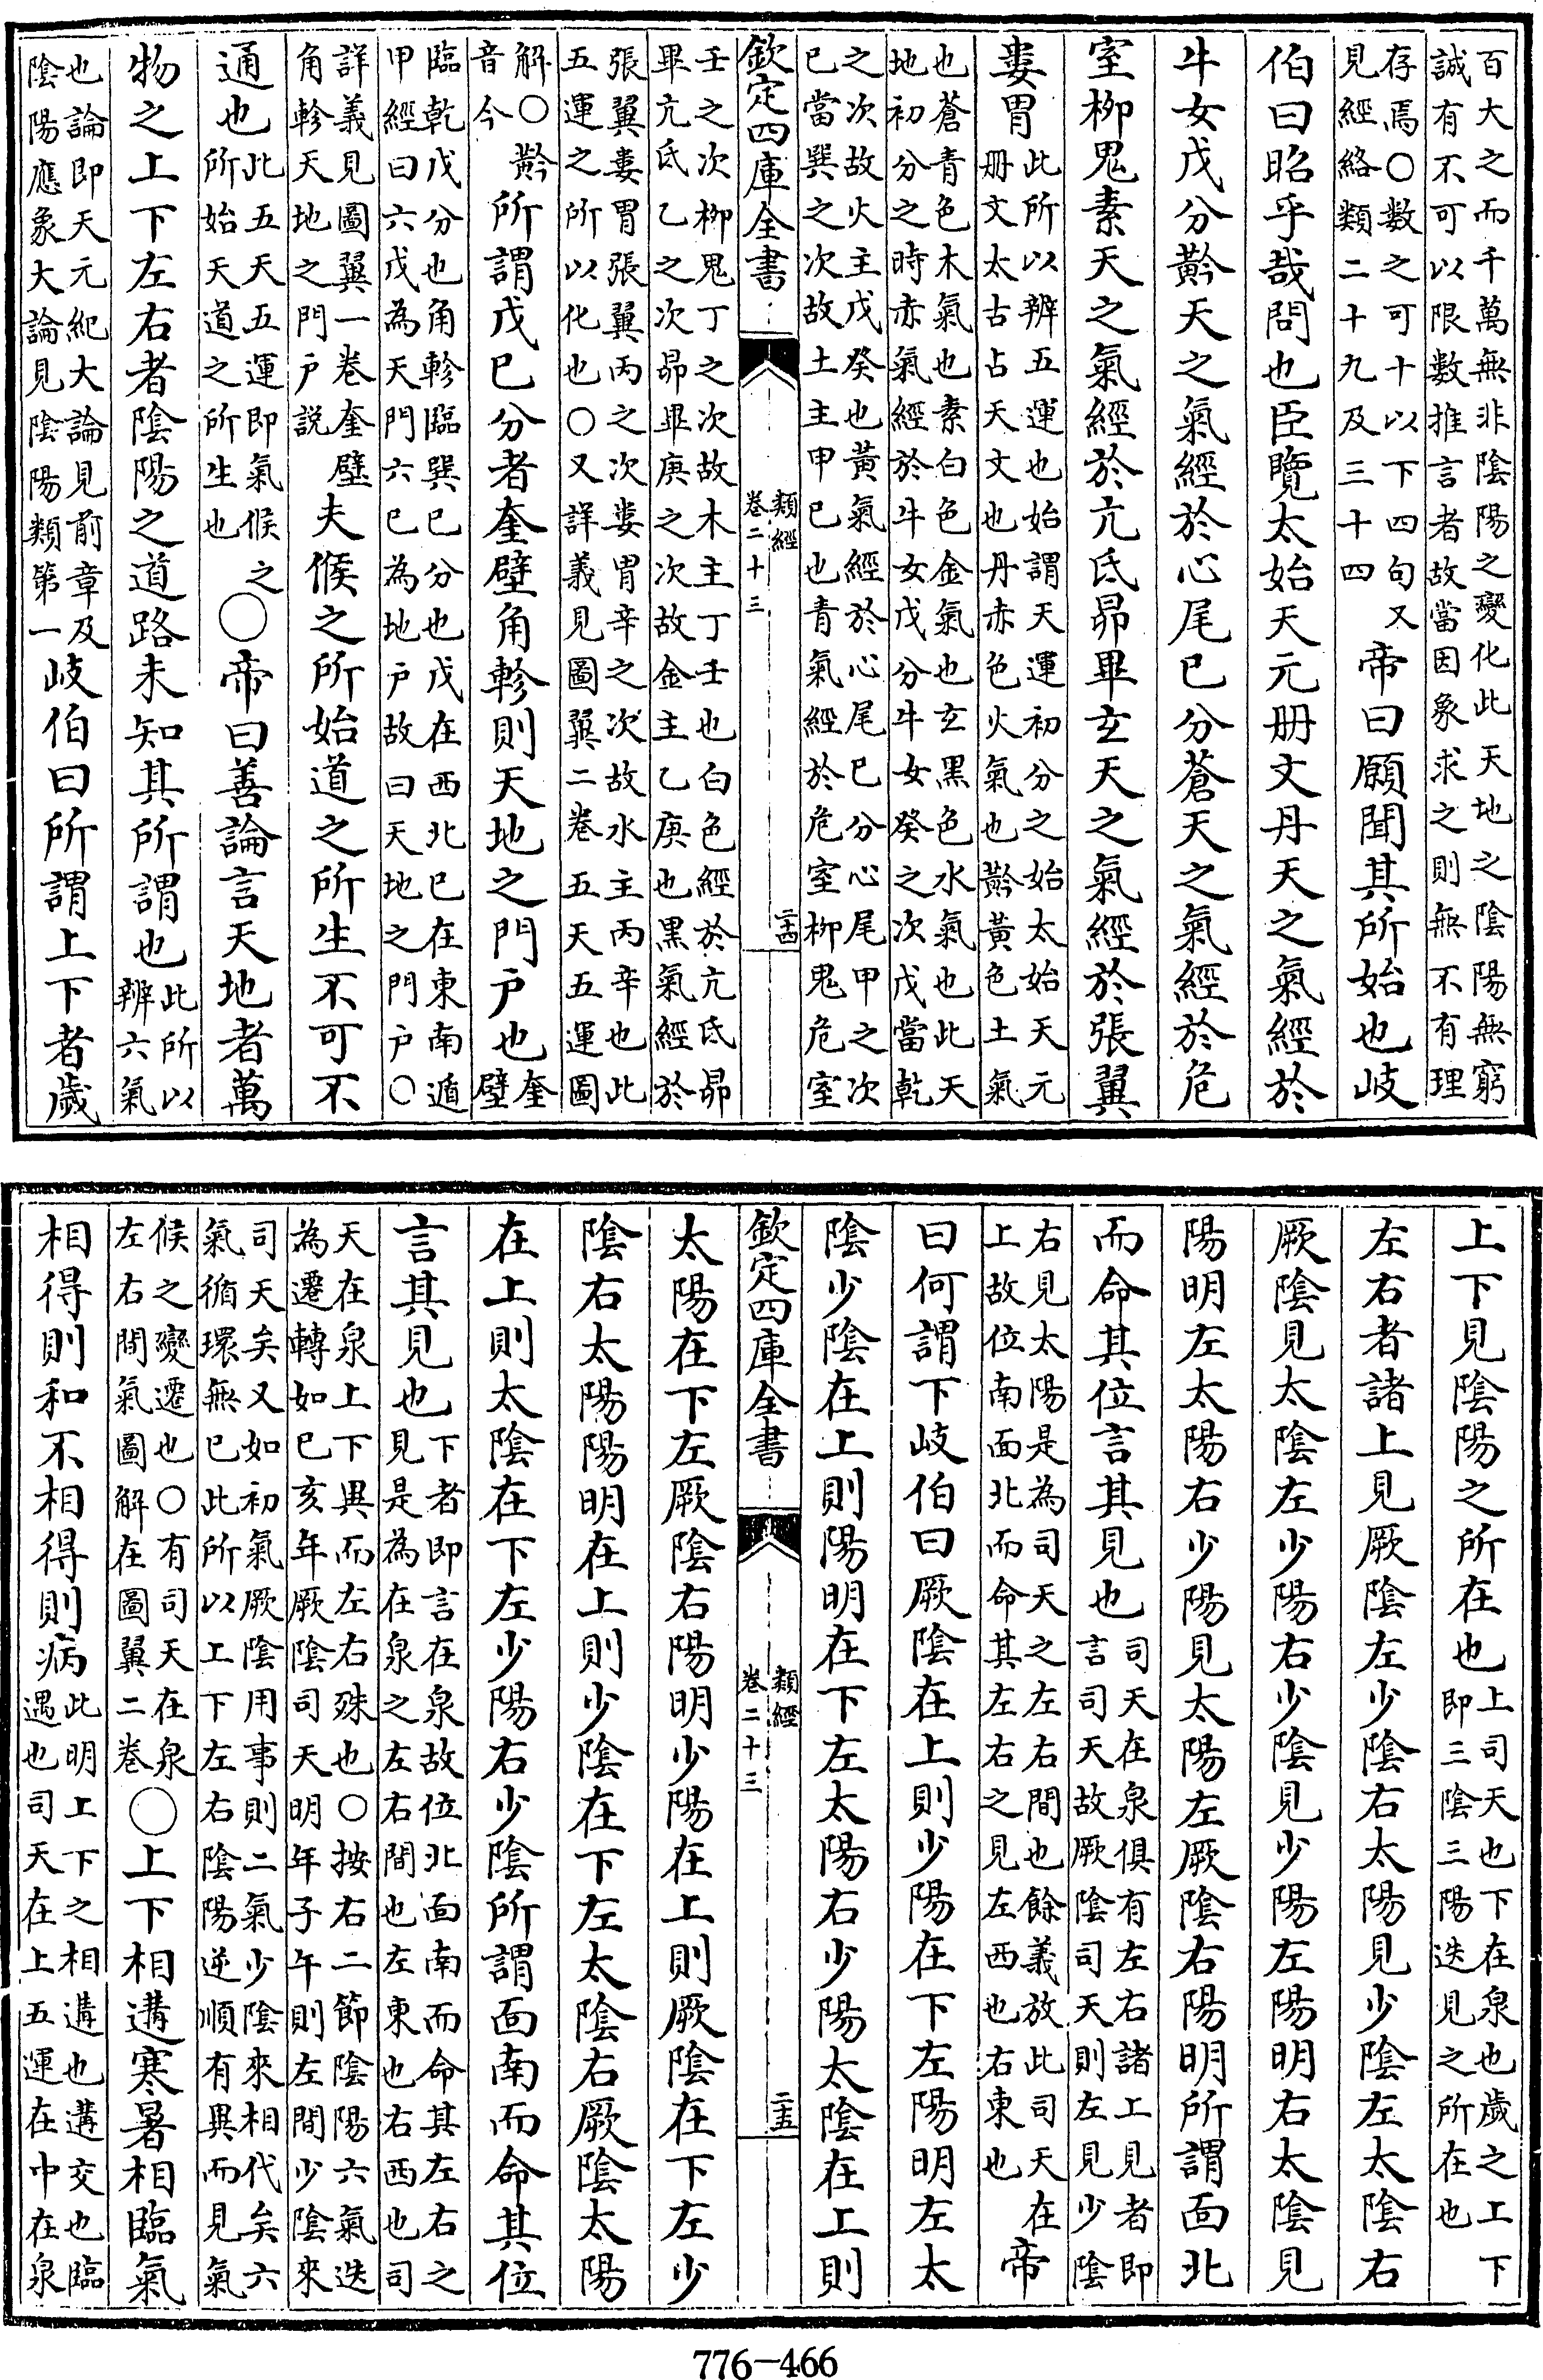 百大之而千萬無非陰陽之變化此天地之陰陽無窮
誠有不可以限數推言者故當因象求之則無不有理
存焉○數之可十以下四句又
見經絡類二十九及三十四
帝曰願聞其所始也岐
伯曰昭乎哉問也臣覽太始天元册文丹天之氣經於
牛女戊分黅天之氣經於心尾己分蒼天之氣經於危
室柳鬼素天之氣經於亢氐昴畢玄天之氣經於張翼
婁胃
此所以辨五運也始謂天運初分之始太始天元
册文太古占天文也丹赤色火氣也黅黃色土氣
也蒼青色木氣也素白色金氣也玄黑色水氣也此天
地初分之時赤氣經於牛女戊分牛女癸之次戊當乾
之次故火主戊癸也黃氣經於心尾己分心尾甲之次
己當巽之次故土主甲己也青氣經於危室柳鬼危室
欽定四庫全書
類經
卷二十三
二十四
壬之次柳鬼丁之次故木主丁壬也白色經於亢氐昴
畢亢氐乙之次昴畢庚之次故金主乙庚也黑氣經於
張翼婁胃張翼丙之次婁胃辛之次故水主丙辛也此
五運之所以化也○又詳義見圖翼二卷五天五運圖
解○黅
音今
所謂戊己分者奎壁角軫則天地之門户也
奎
壁
臨乾戊分也角軫臨巽己分也戊在西北己在東南遁
甲經曰六戊為天門六己為地户故曰天地之門户○
詳義見圖翼一卷奎壁
角軫天地之門户說
夫候之所始道之所生不可不
通也
此五天五運即氣候之
所始天道之所生也
○帝曰善論言天地者萬
物之上下左右者陰陽之道路未知其所謂也
此所以
辨六氣
也論即天元紀大論見前章及
陰陽應象大論見陰陽類第一
岐伯曰所謂上下者歲
上下見陰陽之所在也
上司天也下在泉也歲之上下
即三陰三陽迭見之所在也
左右者諸上見厥陰左少陰右太陽見少陰左太陰右
厥陰見太陰左少陽右少陰見少陽左陽明右太陰見
陽明左太陽右少陽見太陽左厥陰右陽明所謂面北
而命其位言其見也
司天在泉俱有左右諸上見者即
言司天故厥陰司天則左見少陰
右見太陽是為司天之左右間也餘義放此司天在
上故位南面北而命其左右之見左西也右東也
帝
曰何謂下岐伯曰厥陰在上則少陽在下左陽明左太
陰少陰在上則陽明在下左太陽右少陽太陰在上則
欽定四庫全書
類經
卷二十三
二十五
太陽在下左厥陰右陽明少陽在上則厥陰在下左少
陰右太陽陽明在上則少陰在下左太陰右厥陰太陽
在上則太陰在下左少陽右少陰所謂面南而命其位
言其見也
下者即言在泉故位北面南而命其左右之
見是為在泉之左右間也左東也右西也司
天在泉上下異而左右殊也○按右二節陰陽六氣迭
為遷轉如己亥年厥陰司天明年子午則左間少陰來
司天矣又如初氣厥陰用事則二氣少陰來相代矣六
氣循環無已此所以上下左右陰陽逆順有異而見氣
候之變遷也○有司天在泉
左右間氣圖解在圖翼二卷
○上下相遘寒暑相臨氣
相得則和不相得則病
此明上下之相遘也遘交也臨
遇也司天在上五運在中在泉
776-466